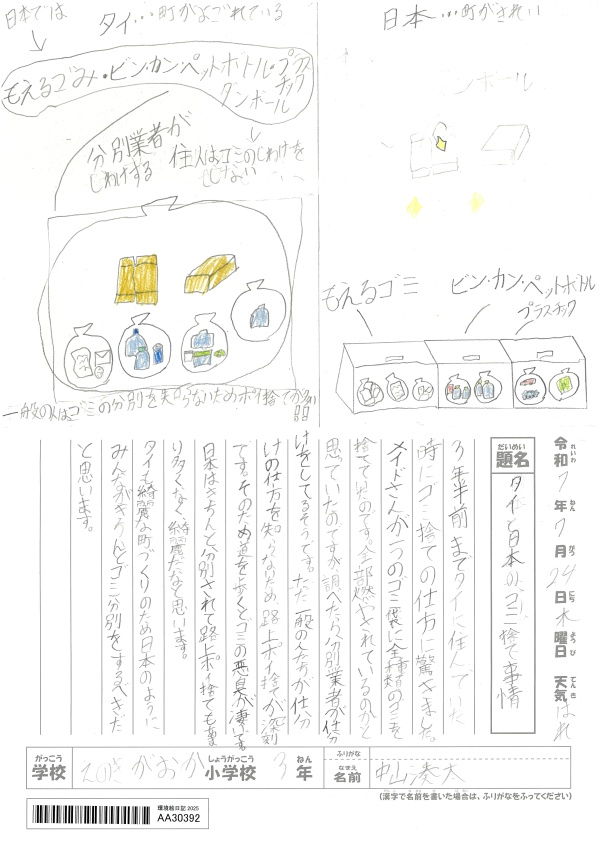 日本では
タイ…町がよごれている
もえるゴみ・ビン・カン・ペットボトル・プラスチック
ダンボール
分別業者が
しわけする
住人はゴミのしわけを
しない
一般の人はゴミの分別を知らないためポイ捨てが多い
日本…町がきれい
ダンボール
もえるゴミ
ビン・カン・ペットボトル
プラスチック
令和7年7月24日木曜日 天気はれ
れいわ ねん がつ にち ようび てんき
だいめい
題名 タイと日本のゴミ捨て事情
3年半前までタイに住んでいた
時にゴミ捨ての仕方に驚きました。
メイドさんが一つのゴミ袋に全種類のゴミを
捨てていたのです。全部燃やされているのかと
思っていたのですが調べたら分別業者が仕分
けをしてるそうです。ただ一般の人たちが仕分
けの仕方を知らないため路上ポイ捨てが深刻
です。そのため道を歩くとゴミの悪臭が凄いです
日本はきちんと分別されて路上ポイ捨てもあま
り多くなく綺麗だなと思います。
タイも綺麗な町づくりのため日本のように
みんながきちんとゴミ分別をするべきだ
と思います。
がっこう しょうがっこう ねん ふりがな
学校 えのきがおか小学校 3年
なまえ
名前 中山湊太
(漢字で名前を書いた場合は、ふりがなをふってください)
環境絵日記 2025
AA30392